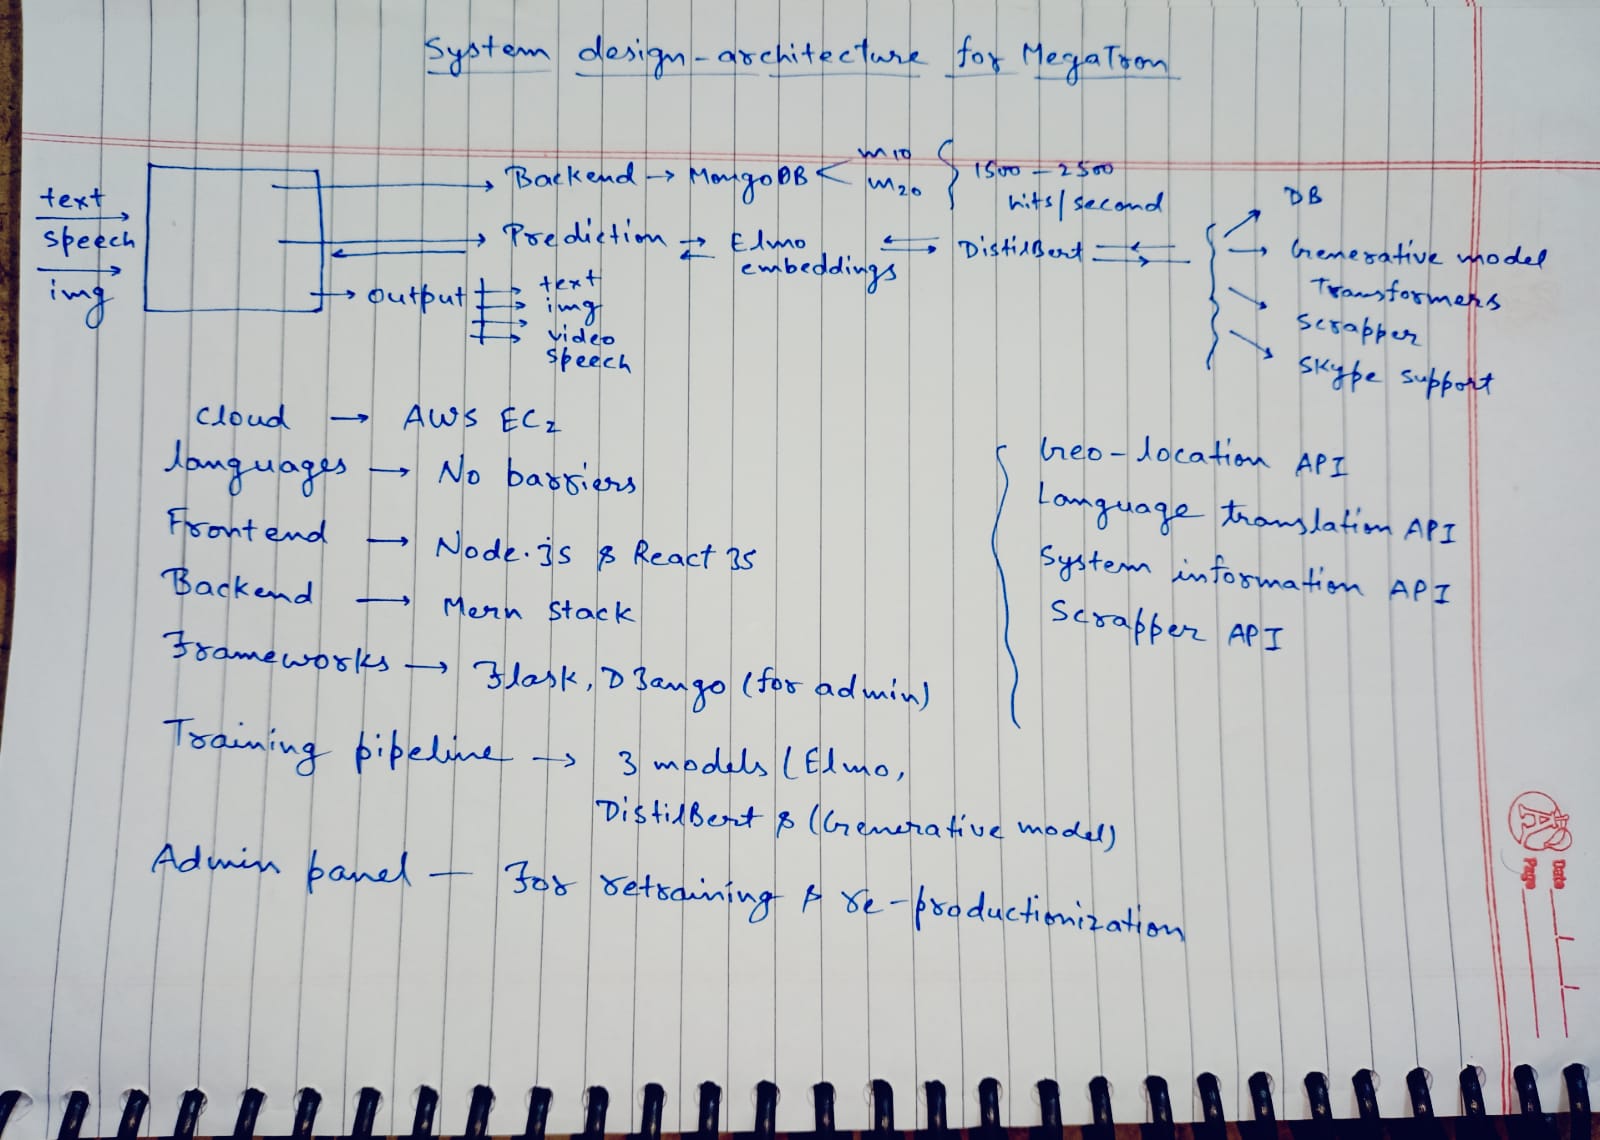 System design-architecture for MegaTron
text
speech
img
Backend → MongoDB < M10
M20
1500 - 2500
hits/second
Prediction ⇄ Elmo
embeddings
DistilBert
output
text
img
video
speech
DB
Generative model
Transformers
Scrapper
Skype support
cloud → AWS EC2
languages → No barriers
Frontend → Node.js & React JS
Backend → Mern Stack
Frameworks → Flask, DJango (for admin)
Training pipeline → 3 models (Elmo,
DistilBert & (Generative model)
Admin panel - For retraining & re-productionization
Geo-location API
Language translation API
System information API
Scrapper API
Date
Page